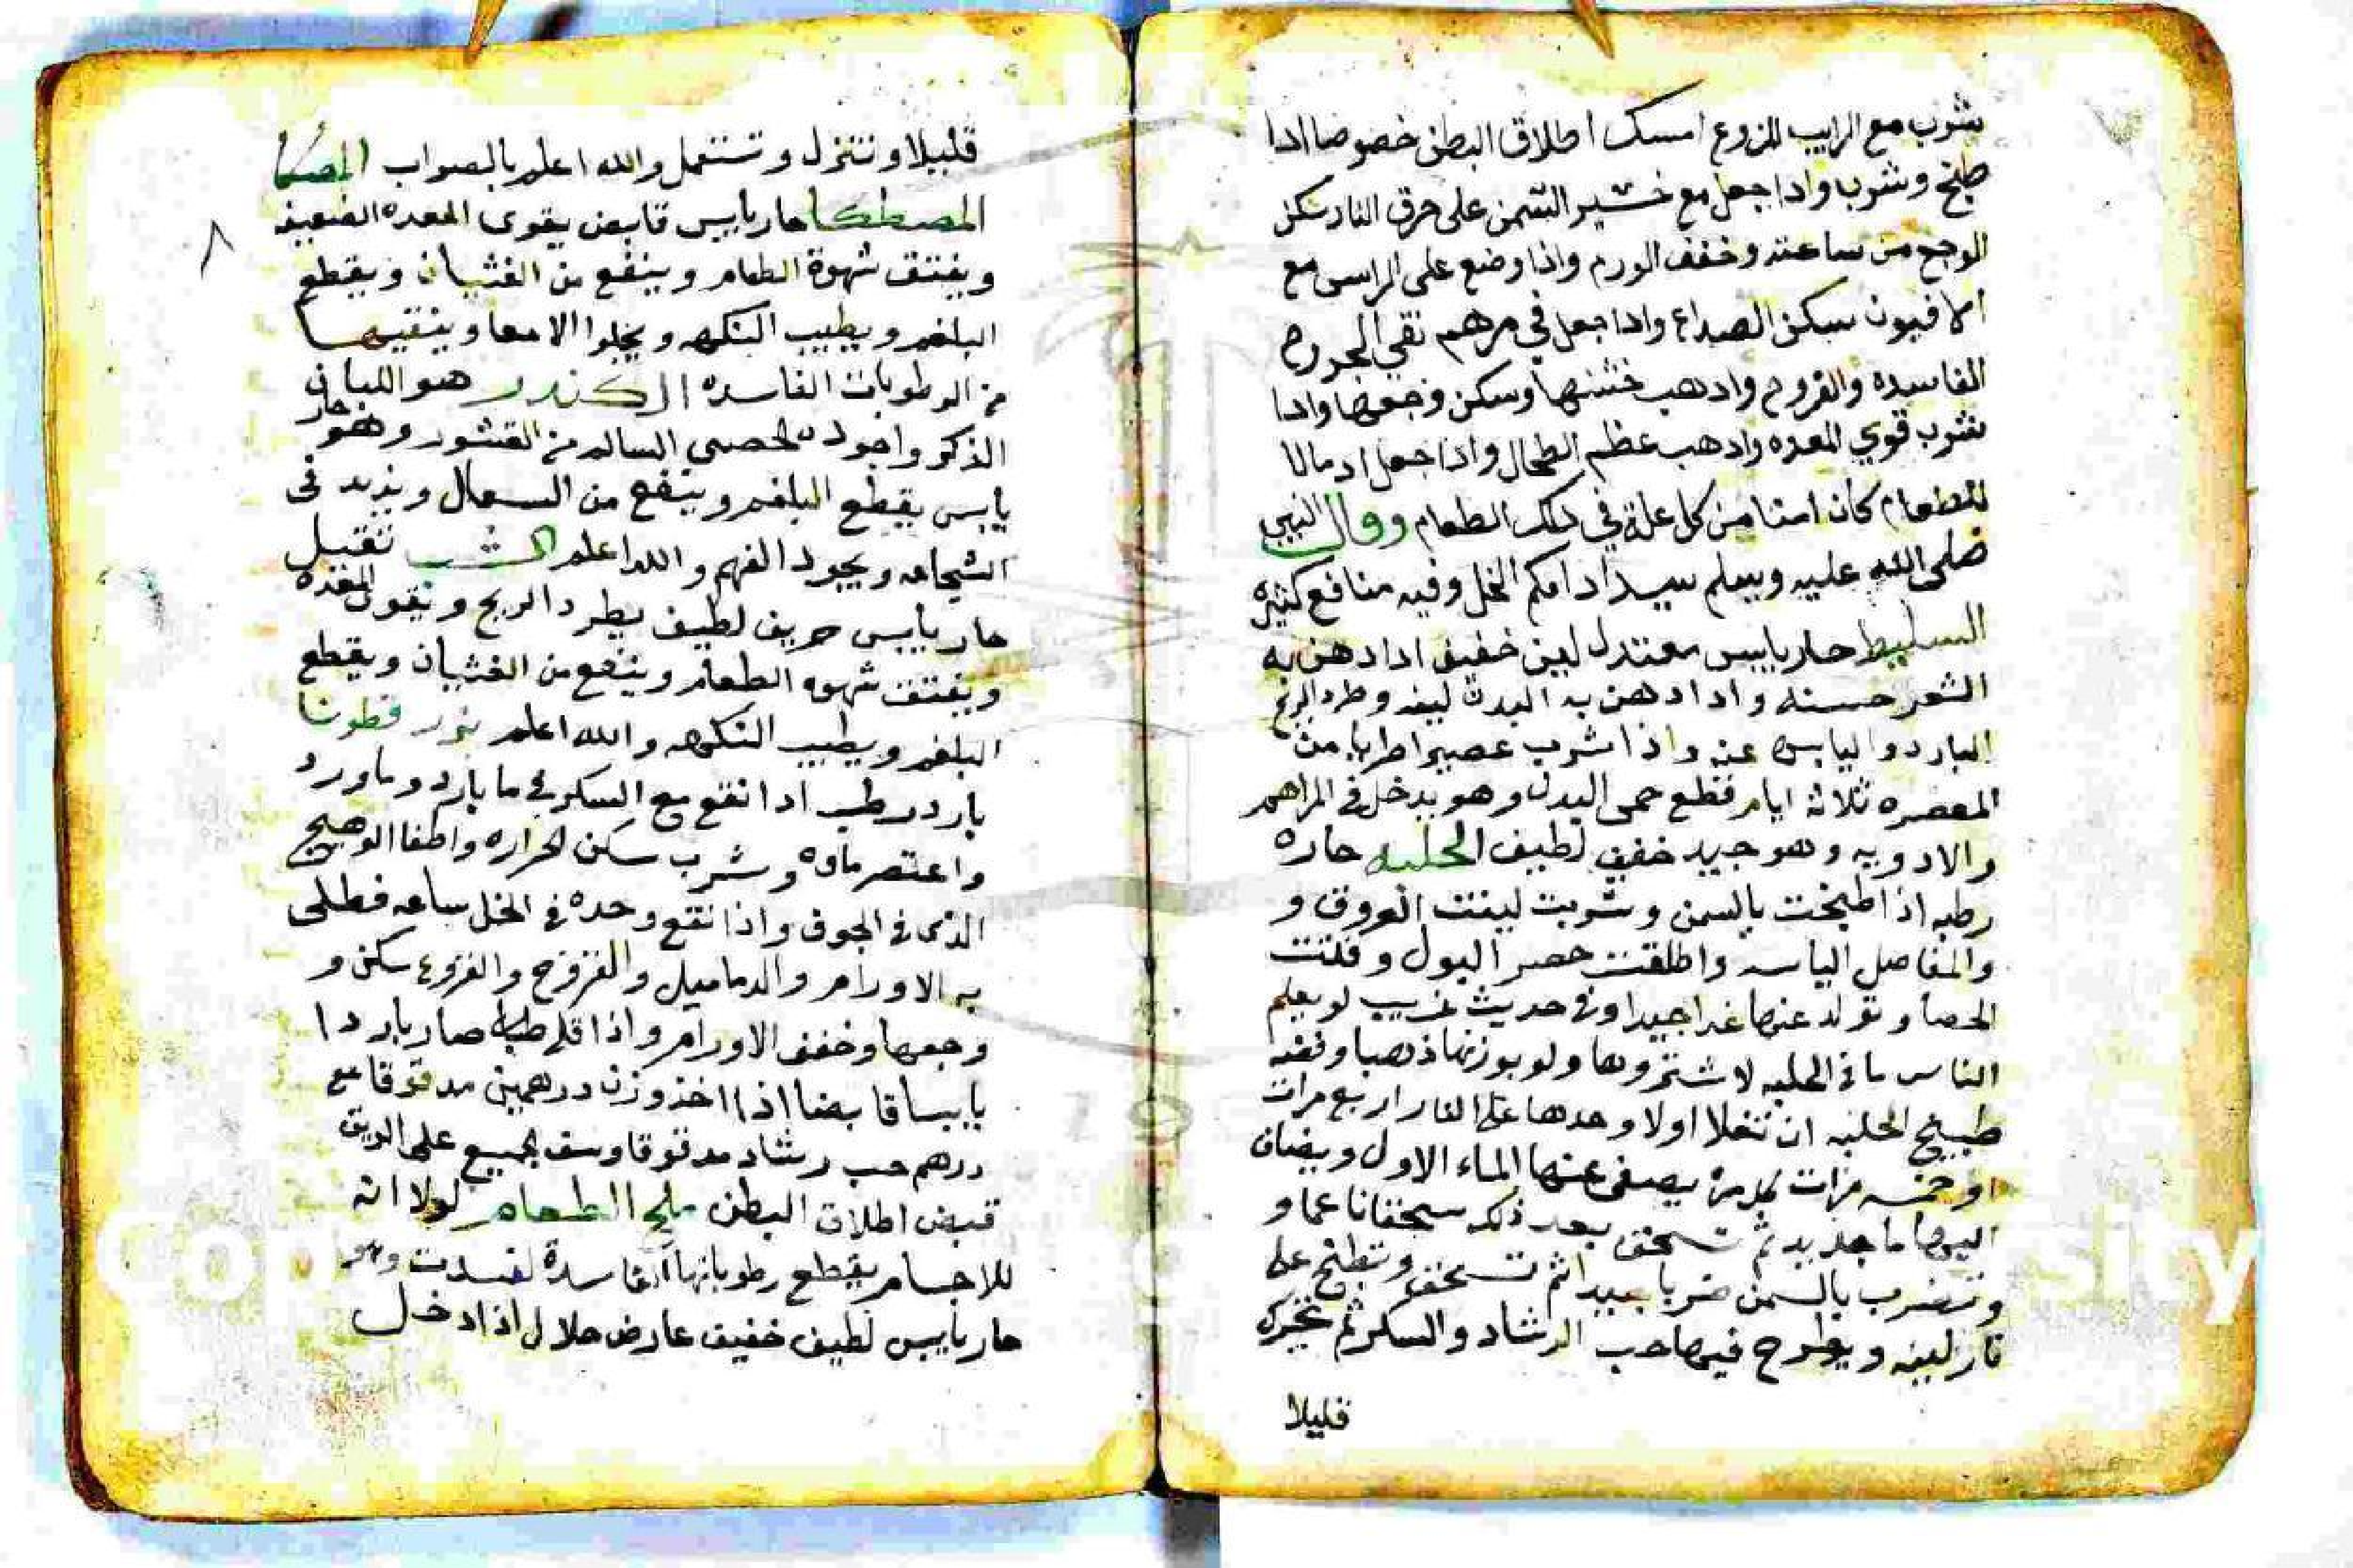 شرب مع الرايب المزوع امسك اطلاق البطن خصوصا اذا
طبخ وشرب واذا جعل مع خشير السمن على حرق النار سكن
الوجع من ساعته وخفف الورم واذا وضع على الراس مع
الافيون سكن الصداع واذا جعل في مرهم نقى الجروح
الفاسده والقروح واذهب خشنها وسكن وجعها واذا
شرب قوي المعده واذهب عظم الطحال واذا جعل اداما
للطعام كان امنا من كل علة في ذلك الطعام وقال النبي
صلى الله عليه وسلم سيد ادامكم الخل وفيه منافع كثيره
السليط حار يابس معتدل لين خفيف اذا دهن به
الشعر حسنه واذا دهن به البدن لينه وطرد الريح
البارد واليابس عنه واذا شرب عصيرا طريا من
المعصره ثلاثة ايام قطع حمى البدن وهو يدخل في المراهم
والادويه وهو جيد خفيف لطيف الحلبه حاره
رطبه اذا طبخت بالسمن وشربت لينت العروق و
والمفاصل الياسه واطلقت حصر البول وفتتت
الحصا وتولد عنها غدا جيدا وفي حديث غريب لو يعلم
الناس ما في الحلبه لاشتروها ولو بوزنها ذهبا وفضه
طبيخ الحلبه ان تغلا اولا وحدها على النار اربع مرات
او خمسه مرات كل مرة يصفى عنها الماء الاول ويضاف
اليها ما جديد ثم تسحق بعد ذلك سحقا ناعما و
وتضرب بالسمن ضربا جيدا ثم تسحق وتطبخ على
نار لينه ويطرح فيها حب الرشاد والسكر ثم تحرك
قليلا
قليلا وتنزل وتستعمل والله اعلم بالصواب المصكا
المصطكا حار يابس قابض يقوى المعده الضعيفه
ويفتق شهوة الطعام وينفع من الغثيان ويقطع
البلغم ويطيب النكهه ويجلوا الامعا وينقيها
من الرطوبات الفاسده الكندر هو اللبان
الذكر واجوده الحصى السالم من القشور وهو حار
يابس يقطع البلغم وينفع من السعال ويزيد في
الشجاعه ويجود الفهم والله اعلم تقبل
حار يابس حريف لطيف يطرد الريح ويقوى المعده
ويفتق شهوه الطعام وينفع من الغثيان ويقطع
البلغم ويطيب النكهه والله اعلم بزر قطونا
بارد رطب اذا نقع مع السكر في ما بارد وماورد
واعتصر ماوه وشرب سكن الحراره واطفا الوهيج
الذى في الجوف واذا نقع وحده في الخل ساعه فطلى
به الاورام والدماميل والقروح والقروع سكن و
وجعها وخفف الاورام واذا قلي صار باردا
يابسا قابضا اذا اخذ وزن درهمين مدقوقا مع
درهم حب رشاد مدقوقا وسف الجميع على الريق
قبض اطلاق البطن ملح الطعام لولا انه
للاجسام يقطع رطوباتها الفاسدة لفسدت وهو
حار يابس لطيف خفيف عارض حلال اذا دخل
٨